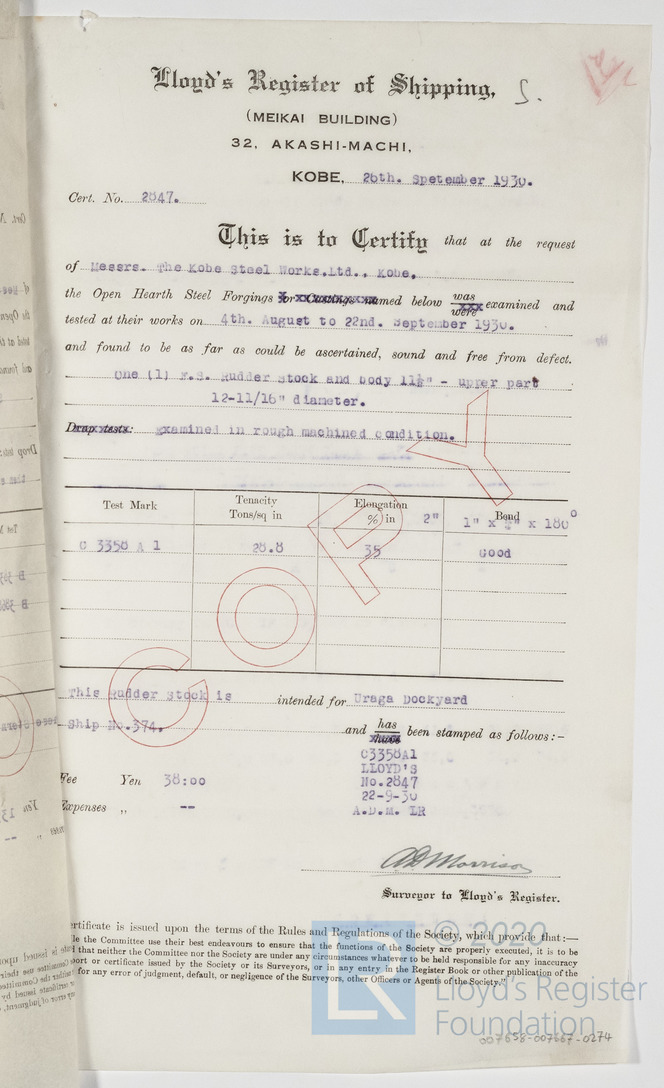 Lloyd's Register of Shipping, S.
(MEIKAI BUILDING)
32, AKASHI-MACHI,
KOBE, 26th. Spetember 1930.
Cert. No. 2847.
This is to Certify that at the request
of Messrs. The Kobe Steel Works.Ltd., Kobe,
the Open Hearth Steel Forgings or Castings named below was were examined and
tested at their works on 4th. August to 22nd. September 1930.
and found to be as far as could be ascertained, sound and free from defect.
One (1) F.S. Rudder Stock and body 11½" - upper part
12-11/16" diameter.
Drop tests: Examined in rough machined condition.
Test Mark Tenacity Tons/sq in Elongation % in 2" Bend 1" x ¾" x 180°
C 3358 A 1 28.8 35 Good
COPY
This Rudder Stock is intended for Uraga Dockyard
Ship No.374. and has have been stamped as follows:-
C3358A1
LLOYD'S
No.2847
22-9-30
A.D.M. LR
Fee Yen 38:00
Expenses „ --
ADMorrison
Surveyor to Lloyd's Register.
ertificate is issued upon the terms of the Rules and Regulations of the Society, which provide that:—
le the Committee use their best endeavours to ensure that the functions of the Society are properly executed, it is to be
d that neither the Committee nor the Society are under any circumstances whatever to be held responsible for any inaccuracy
port or certificate issued by the Society or its Surveyors, or in any entry in the Register Book or other publication of the
for any error of judgment, default, or negligence of the Surveyors, other Officers or Agents of the Society."
© 2020
Lloyd's Register
Foundation
007658-007667-0274